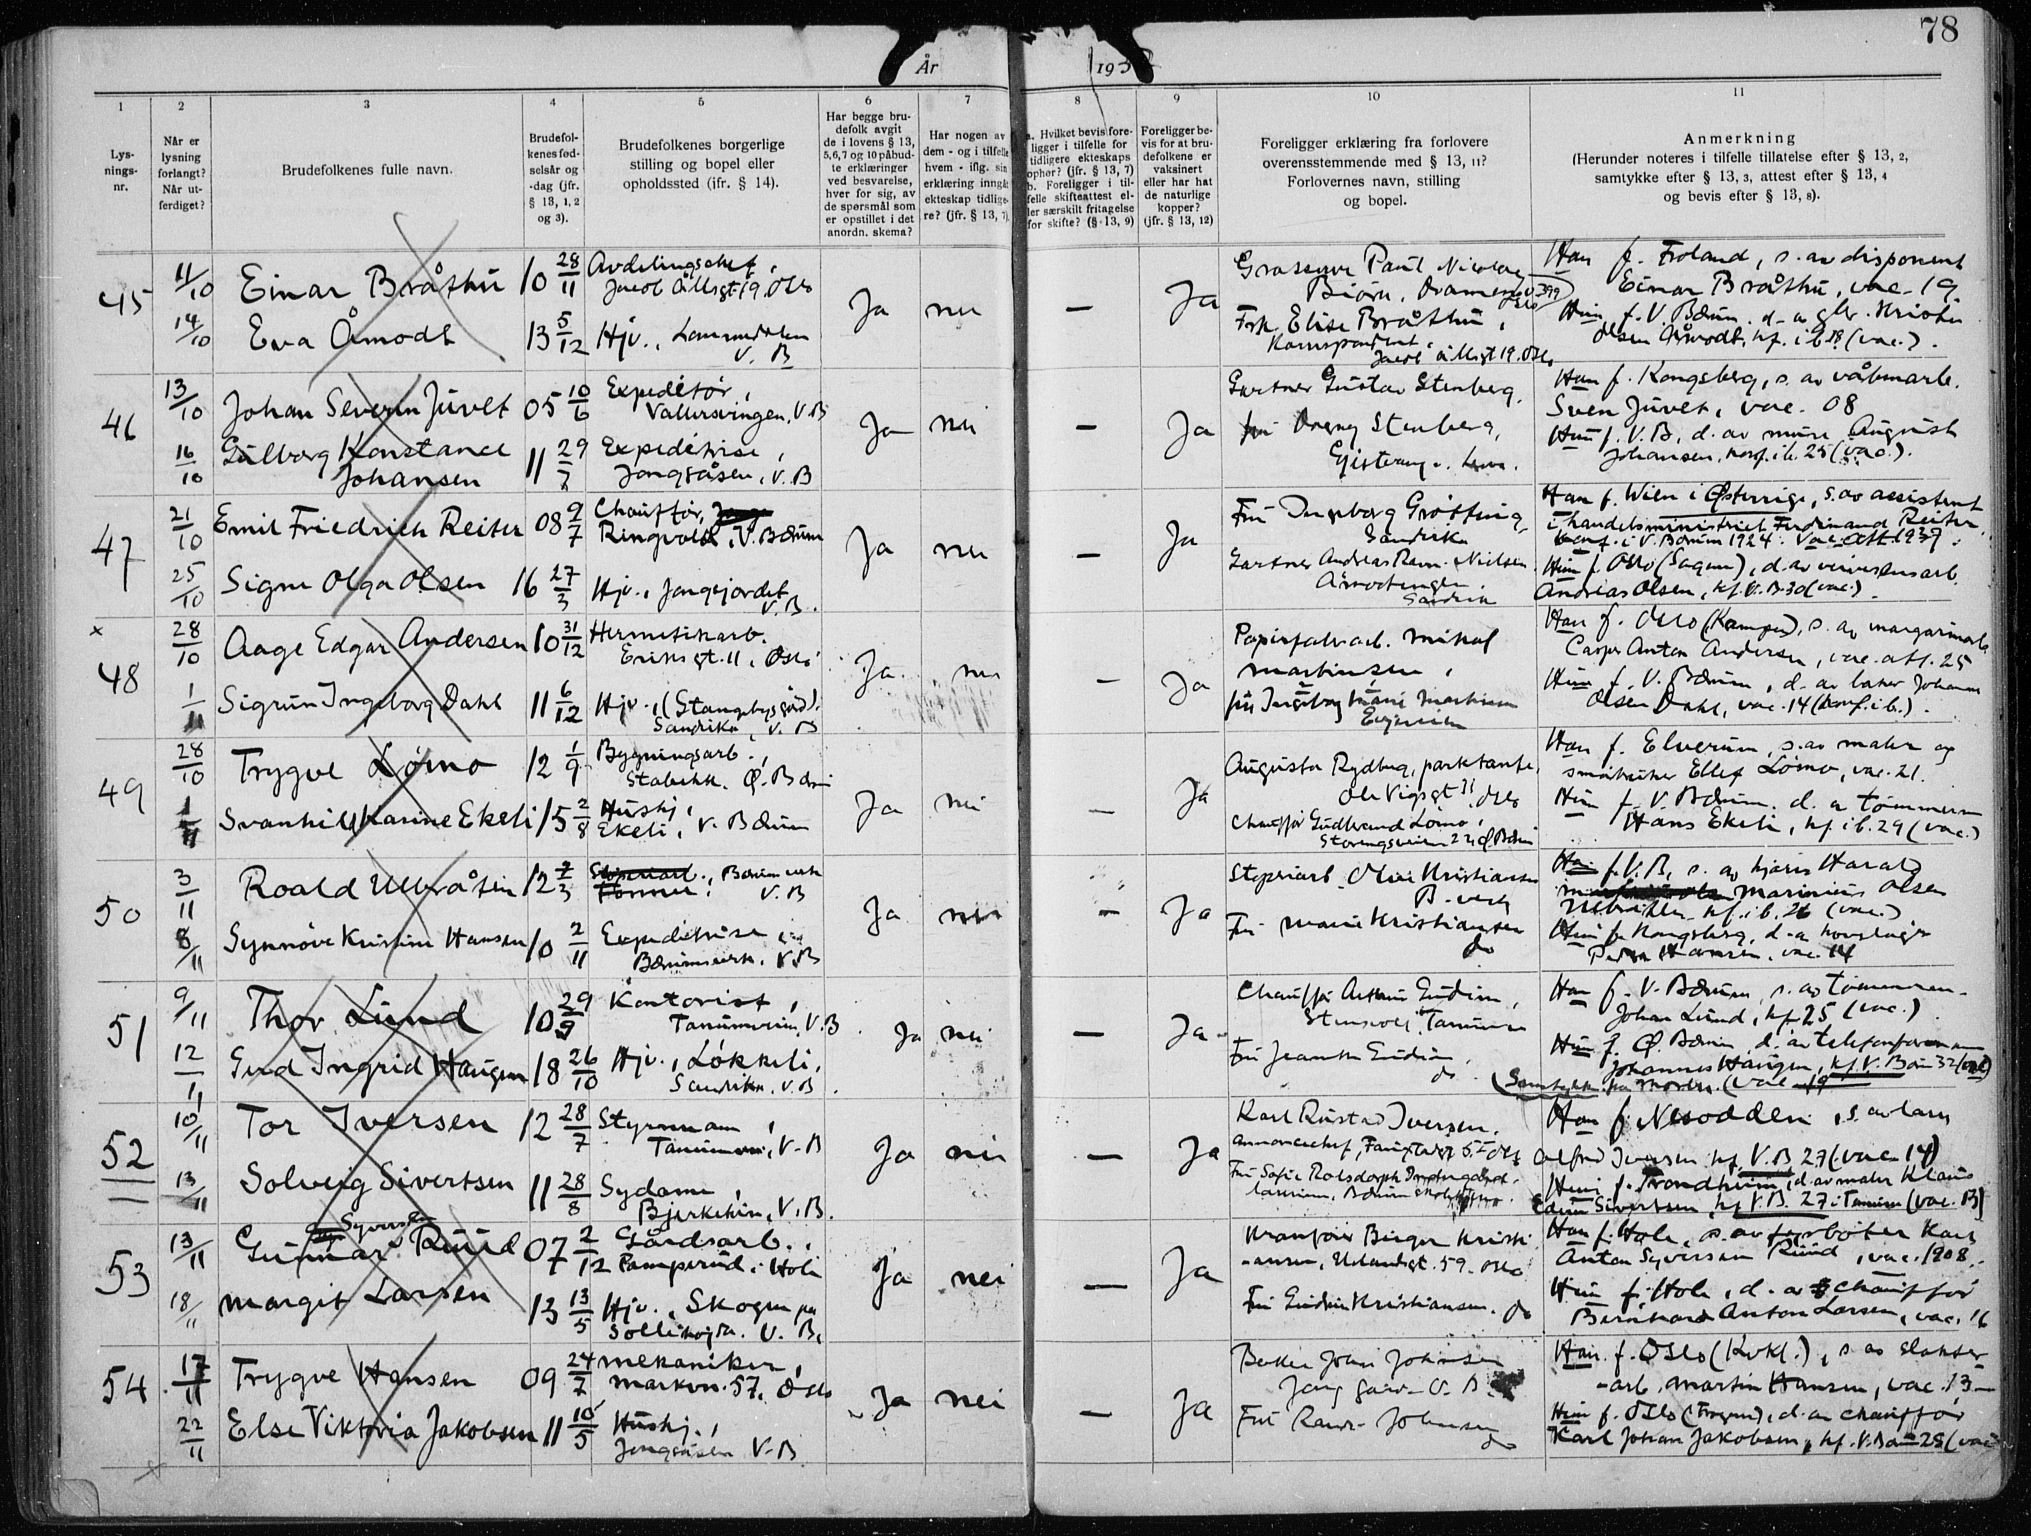 78
År
193
1
2
3
4
5
6
7
8
9
10
11
Lys-
nings-
nr.
Når er
lysning
forlangt?
Når ut-
ferdiget?
Brudefolkenes fulle navn.
Brudefol-
kenes fød-
selsår og
-dag (jfr.
§ 13, 1, 2
og 3).
Brudefolkenes borgerlige
stilling og bopel eller
opholdssted (jfr. § 14).
Har begge bru-
defolk avgit
de i lovens § 13,
5,6,7 og 10 påbud-
te erklæringer
ved besvarelse,
hver for sig, av
de spørsmål som
er opstillet i det
anordn. skema?
Har nogen av
dem - og i tilfelle
hvem - iflg. sin
erklæring inngåt
ekteskap tidlige-
re? (jfr. § 13, 7)
a. Hvilket bevis fore-
ligger i tilfelle for
tidligere ekteskaps
ophør? (jfr. § 13, 7)
b. Foreligger i til-
felle skifteattest el-
ler særskilt fritagelse
for skifte? (§ 13, 9)
Foreligger be-
vis for at bru-
defolkene er
vaksinert
eller har hat
de naturlige
kopper?
(jfr. § 13, 12)
Foreligger erklæring fra forlovere
overensstemmende med § 13, 11?
Forlovernes navn, stilling
og bopel.
Anmerkning
(Herunder noteres i tilfelle tillatelse efter § 13, 2,
samtykke efter § 13, 3, attest efter § 13, 4
og bevis efter § 13, 8).
45
11/10
Einar Bråthu
10 28/11
Avdelingschef,
Jacob Aallsgt 19. Oslo
14/10
Eva Åmodt
13 5/12
Hjv.,
V. B
Ja
nei
—
Ja
Paul Nicolay
Bjørn,
Frk. Elise Bråthu,
Jacob Aallsgt 19. Oslo
Han f. Froland, s. av disponent
Einar Bråthu, vac. 19
Hun f. V. Bærum. d. a
Olsen Åmodt, kf. i b. 28 (vac.).
46
13/10
Johan Severin Juvet
05 10/6
Expeditør,
Vallersvingen, V. B
16/10
Gulborg Konstance
Johansen
11 29/7
Expeditrise,
Jongsåsen, V. B
Ja
nei
—
Ja
Gartner Gustav Stenberg,
Fru Dagny Stenberg,
Han f. Kongsberg, s. av våbenarb.
Sven Juvet, vac. 08
Hun f. V. B, d. av murer August
Johansen, konf. i b. 25 (vac.).
47
21/10
Emil Friedrich Reiter
08 9/7
Chauffør,
Ringvold, V. Bærum
25/10
Signe Olga Olsen
16 27/3
Hjv., Jongsjordet
V. B.
Ja
nei
—
Ja
Fru Ingeborg Grøtting,
Sandvika
Gartner Andreas Ravn-Nielsen
Sandvika
Han f. Wien i Østerrige, s. av assistent
i handelsministriet Ferdinand Reiter
konf. i V. Bærum 1924. Vac. att. 1939.
Hun f. Oslo (Sagen), d. av universarb.
Andreas Olsen, kf. V. B. 30 (vac.).
x
48
28/10
Aage Edgar Andersen
10 31/12
Hermetikkarb.
Eriksgt. 11, Oslo
1/11
Sigrun Ingeborg Dahl
11 6/12
Hjv., (Stangebysgård).
Sandvika, V. B
Ja
nei
—
Ja
Papirfabrarb. Mikal
Martinsen,
fru Ingeborg Marie Martinsen
Han f. Oslo (Kampen), s. av margarinarb.
Casper Anton Andersen, vac. att. 25
Hun f. V. Bærum, d. av baker Johannes
Olsen Dahl, vac. 14 (konf. i b.).
49
28/10
Trygve Lømo
12 1/9
Bygningsarb.,
Stabekk. Ø. Bærum
1/11
Svanhild Karine Ekeli
15 2/8
Hushj,
Ekeli, V. Bærum
Ja
nei
—
Ja
Augusta Rydberg, parktante,
Ole Vigsgt 11, Oslo
Chauffør Gudbrand Lømo,
Han f. Elverum, s. av maler og
småbruker Ellef Lømo, vac. 21.
Hun f. V. Bærum. d. a tømmerm
Hans Ekeli, kf. i b. 29 (vac.)
50
3/11
Roald Ulbråten
12 2/3
Former, Bærumsverk
V. B
8/11
Synnöve Kristine Hansen
10 2/11
Expeditrise
Bærumsverk. V. B
Ja
nei
—
Ja
Støperiarb. Olai Kristiansen
B. verk
Fru Marie Kristiansen
do
Han f. V. B, s. av Harald
Marinius Olsen
Ulbråten kf. i b. 26 (vac.)
Hun f. Kongsberg, d. a
Hansen, vac. 14
51
9/11
Thor Lund
10 29/9
Kontorist,
Tanumveien, V. B
12/11
Gerd Ingrid Haugen
18 26/10
Hjv., Løkkeli,
Sandvika, V. B.
Ja
nei
—
Ja
Chauffør Arthur Gudim,
Tanum
Fru Jeanette Gudim,
do
Han f. V. Bærum, s. av tømmerm-
Johan Lund, kf. 25 (vac.)
Hun f. Ø. Bærum d. av telefonformann
Johannes Haugen, kf. V. Bærum 32 (vac)
(Samtykke fra moren. (vac. 19
52
10/11
Tor Iversen
12 28/7
Styrmann,
Tanumveien, V. B
13/11
Solveig Sivertsen
11 28/8
Sydame,
Bjerkehein, V. B.
Ja
nei
—
Ja
Karl Rustad Iversen,
Annoncechef, Oslo
Fru Sofie Rolsdorph
Han f. Nesodden, s. av lærer
Alfred Iversen kf. V. B 27 (vac. 14)
Hun f. Trondheim, d. av maler Klaus
Edvin Sivertsen, kf. V. B. 27 i Tanum (vac. 13)
53
13/11
Gunnar Syversen Ruud
07 2/12
Gårdsarb.,
Pamperud i Hole
18/11
Margit Larsen
13 13/5
Hjv., Skogen pr
Sollihøgda. V. B.
Ja
nei
—
Ja
Kranfører Birger Kristi-
ansen, Uelandsgt. 59. Oslo
Fru Gudrun Kristiansen. do
Han f. Hole, s. av forbøter Karl
Anton Syversen Ruud, vac. 1908.
Hun f. Hole, d. av chauffør
Bernhard Anton Larsen, vac. 16
54
17/11
Trygve Hansen
09 24/7
Mekaniker,
Markvn. 57, Oslo
22/11
Else Viktoria Jakobsen
11 10/5
Hushj.,
Jongsåsen V. B
Ja
nei
—
Ja
Baker Johan Johnsen
Jong gård V. B
Fru Randi Johnsen
do
Han f. Oslo (Kvkl.), s. av slakter-
arb. Martin Hansen, vac. 13
Hun f. Oslo (Frogner), d. av chauffør
Karl Johan Jakobsen, kf. V. Bærum 25 (vac